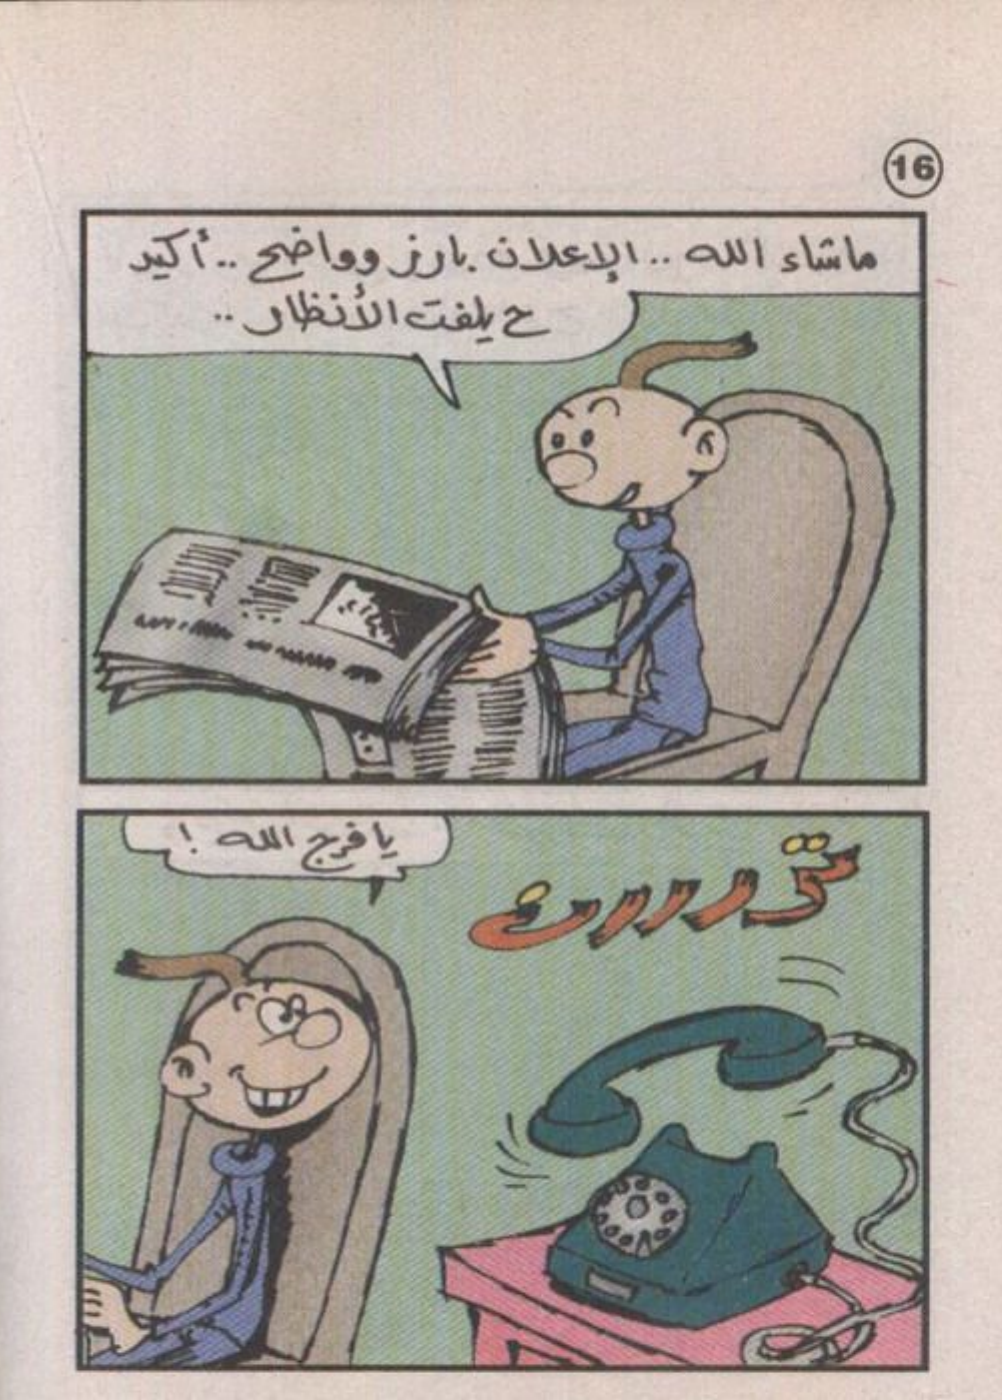 16
ماشاء الله .. الإعلان بارز وواضح .. أكيد
ح يلفت الأنظار ..
يا فرج الله !
تررررن